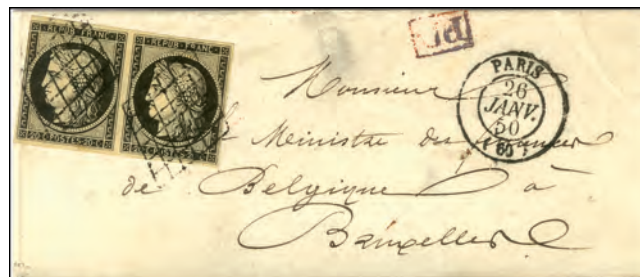 REPUB. FRANC.
REPUB. FRANC.
20 C. POSTES. 20 C.
20 C. POSTES. 20 C.
PD
PARIS
26
JANV.
50
60
Monsieur
Ministre des finances
de Belgique à
Bruxelles